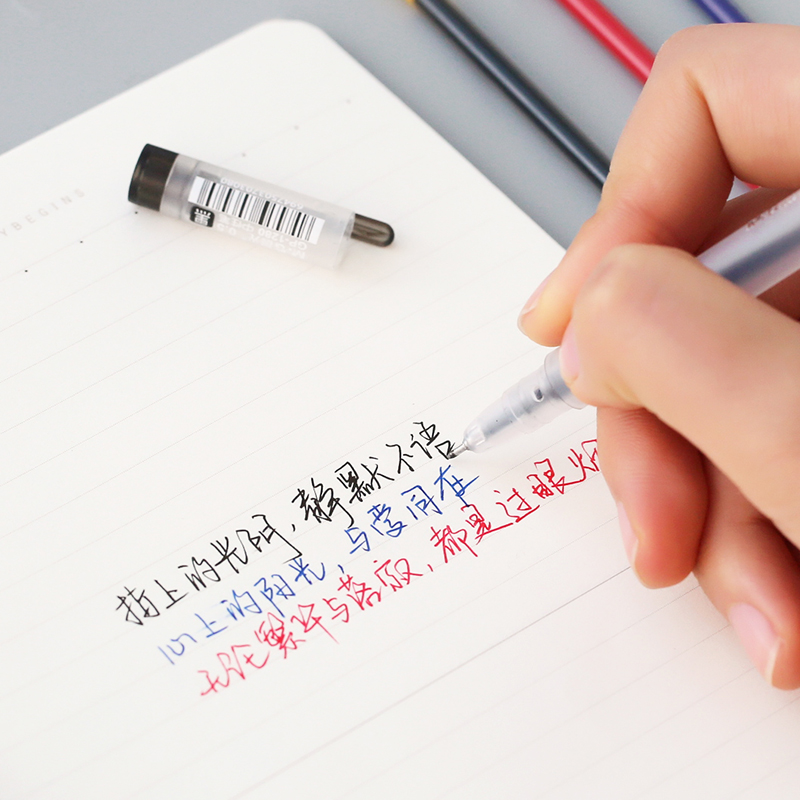 YBEGINS
指上的光阴，静默不语
心上的阳光，与爱同在
无论繁华与落寂，都是过眼烟